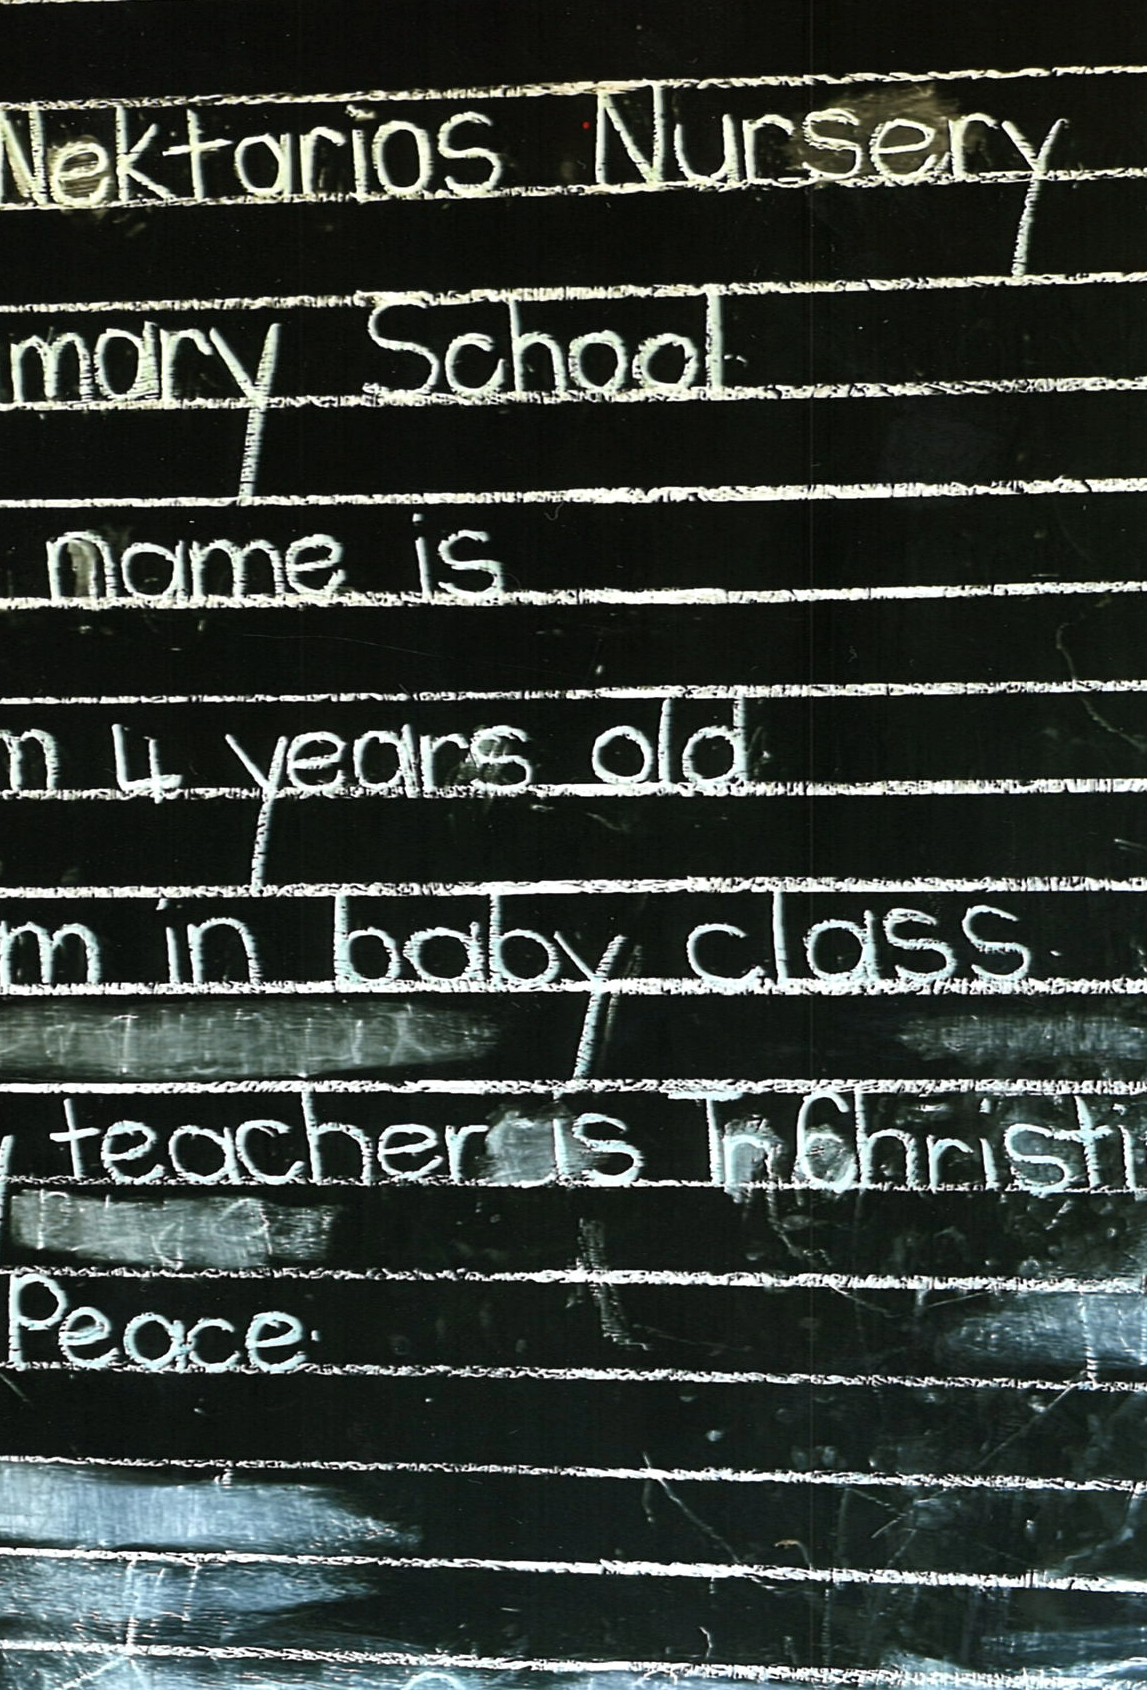 Nektarios Nursery
mary School
name is
m 4 years old
m in baby class.
y teacher is Tr Christi
Peace.